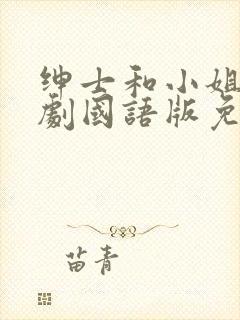 绅士和小姐
劇國語版免
苗青